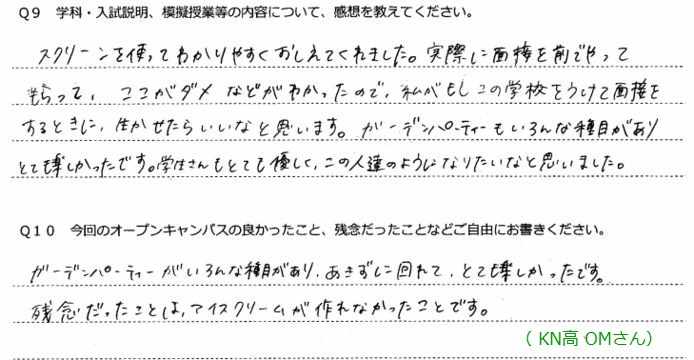 Q9 学科・入試説明、模擬授業等の内容について、感想を教えてください。
スクリーンを使ってわかりやすくおしえてくれました。実際に面接を前でやって
もらって、ここがダメなどがわかったので、私がもしこの学校をうけて面接を
するときに、生かせたらいいなと思います。ガーデンパーティーもいろんな種目があり
とても楽しかったです。学生さんもとても優しく、この人達のようになりたいなと思いました。
Q10 今回のオープンキャンパスの良かったこと、残念だったことなどご自由にお書きください。
ガーデンパーティーがいろんな種目があり、あきずに回れて、とても楽しかったです。
残念だったことは、アイスクリームが作れなかったことです。
（KN高 OMさん）